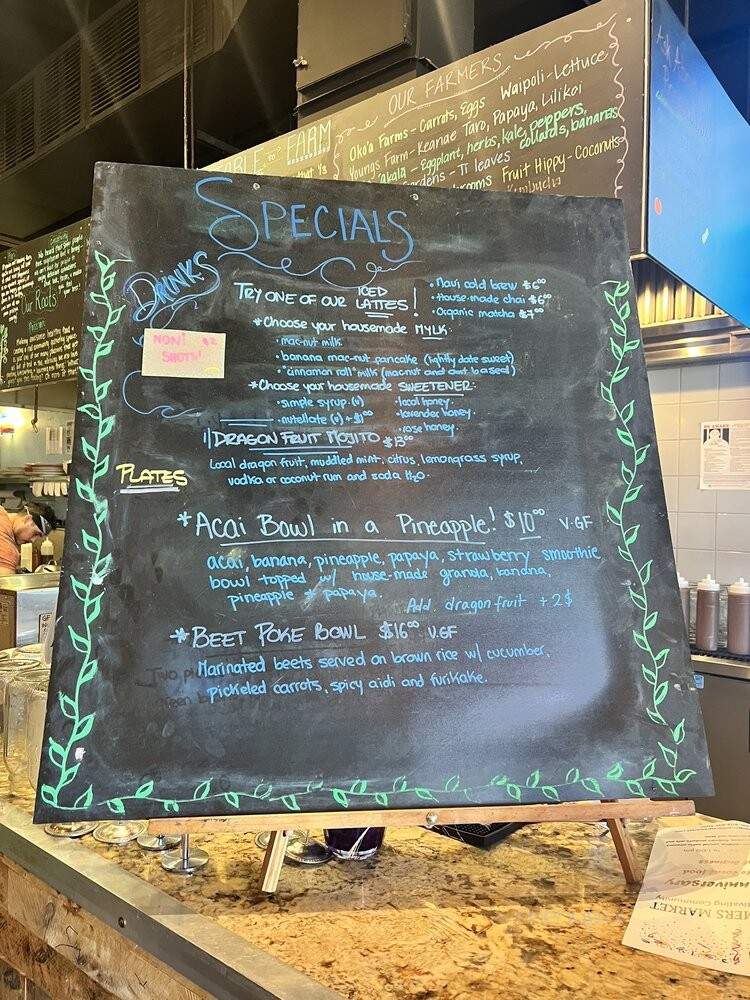 OUR FARMERS
FARM
Oko'a Farms - Carrots, Eggs Waipoli - Lettuce
Youngs Farm - Keanae Taro, Papaya, Lilikoi
Eggplant, herbs, kale, peppers,
collards, bananas
Ti leaves Fruit Hippy - Coconuts
Our Roots
SPECIALS
DRINKS
TRY ONE OF OUR ICED LATTES!
• Maui cold brew $6⁰⁰
• House-made chai $6⁰⁰
• Organic matcha $7⁰⁰
NON! $2
SHOTS!
*Choose your housemade MYLK:
• mac-nut milk
• banana mac-nut pancake (lightly date sweet)
• "cinnamon roll" milk (macnut and oat based)
*Choose your housemade SWEETENER:
• simple syrup (v) • local honey
• nutellate (v) + $1⁰⁰ • lavender honey
• rose honey
DRAGON FRUIT MOJITO $13⁰⁰
Local dragon fruit, muddled mint, citrus, lemongrass syrup,
vodka or coconut rum and soda H₂O.
PLATES
*ACAI BOWL in a Pineapple! $10⁰⁰ V·GF
acai, banana, pineapple, papaya, strawberry smoothie
bowl topped w/ house-made granola, banana,
pineapple + papaya.
Add dragonfruit +2$
*BEET POKE BOWL $16⁰⁰ V.GF
Marinated beets served on brown rice w/ cucumber,
pickeled carrots, spicy aidi and furikake.
MERS MARKET